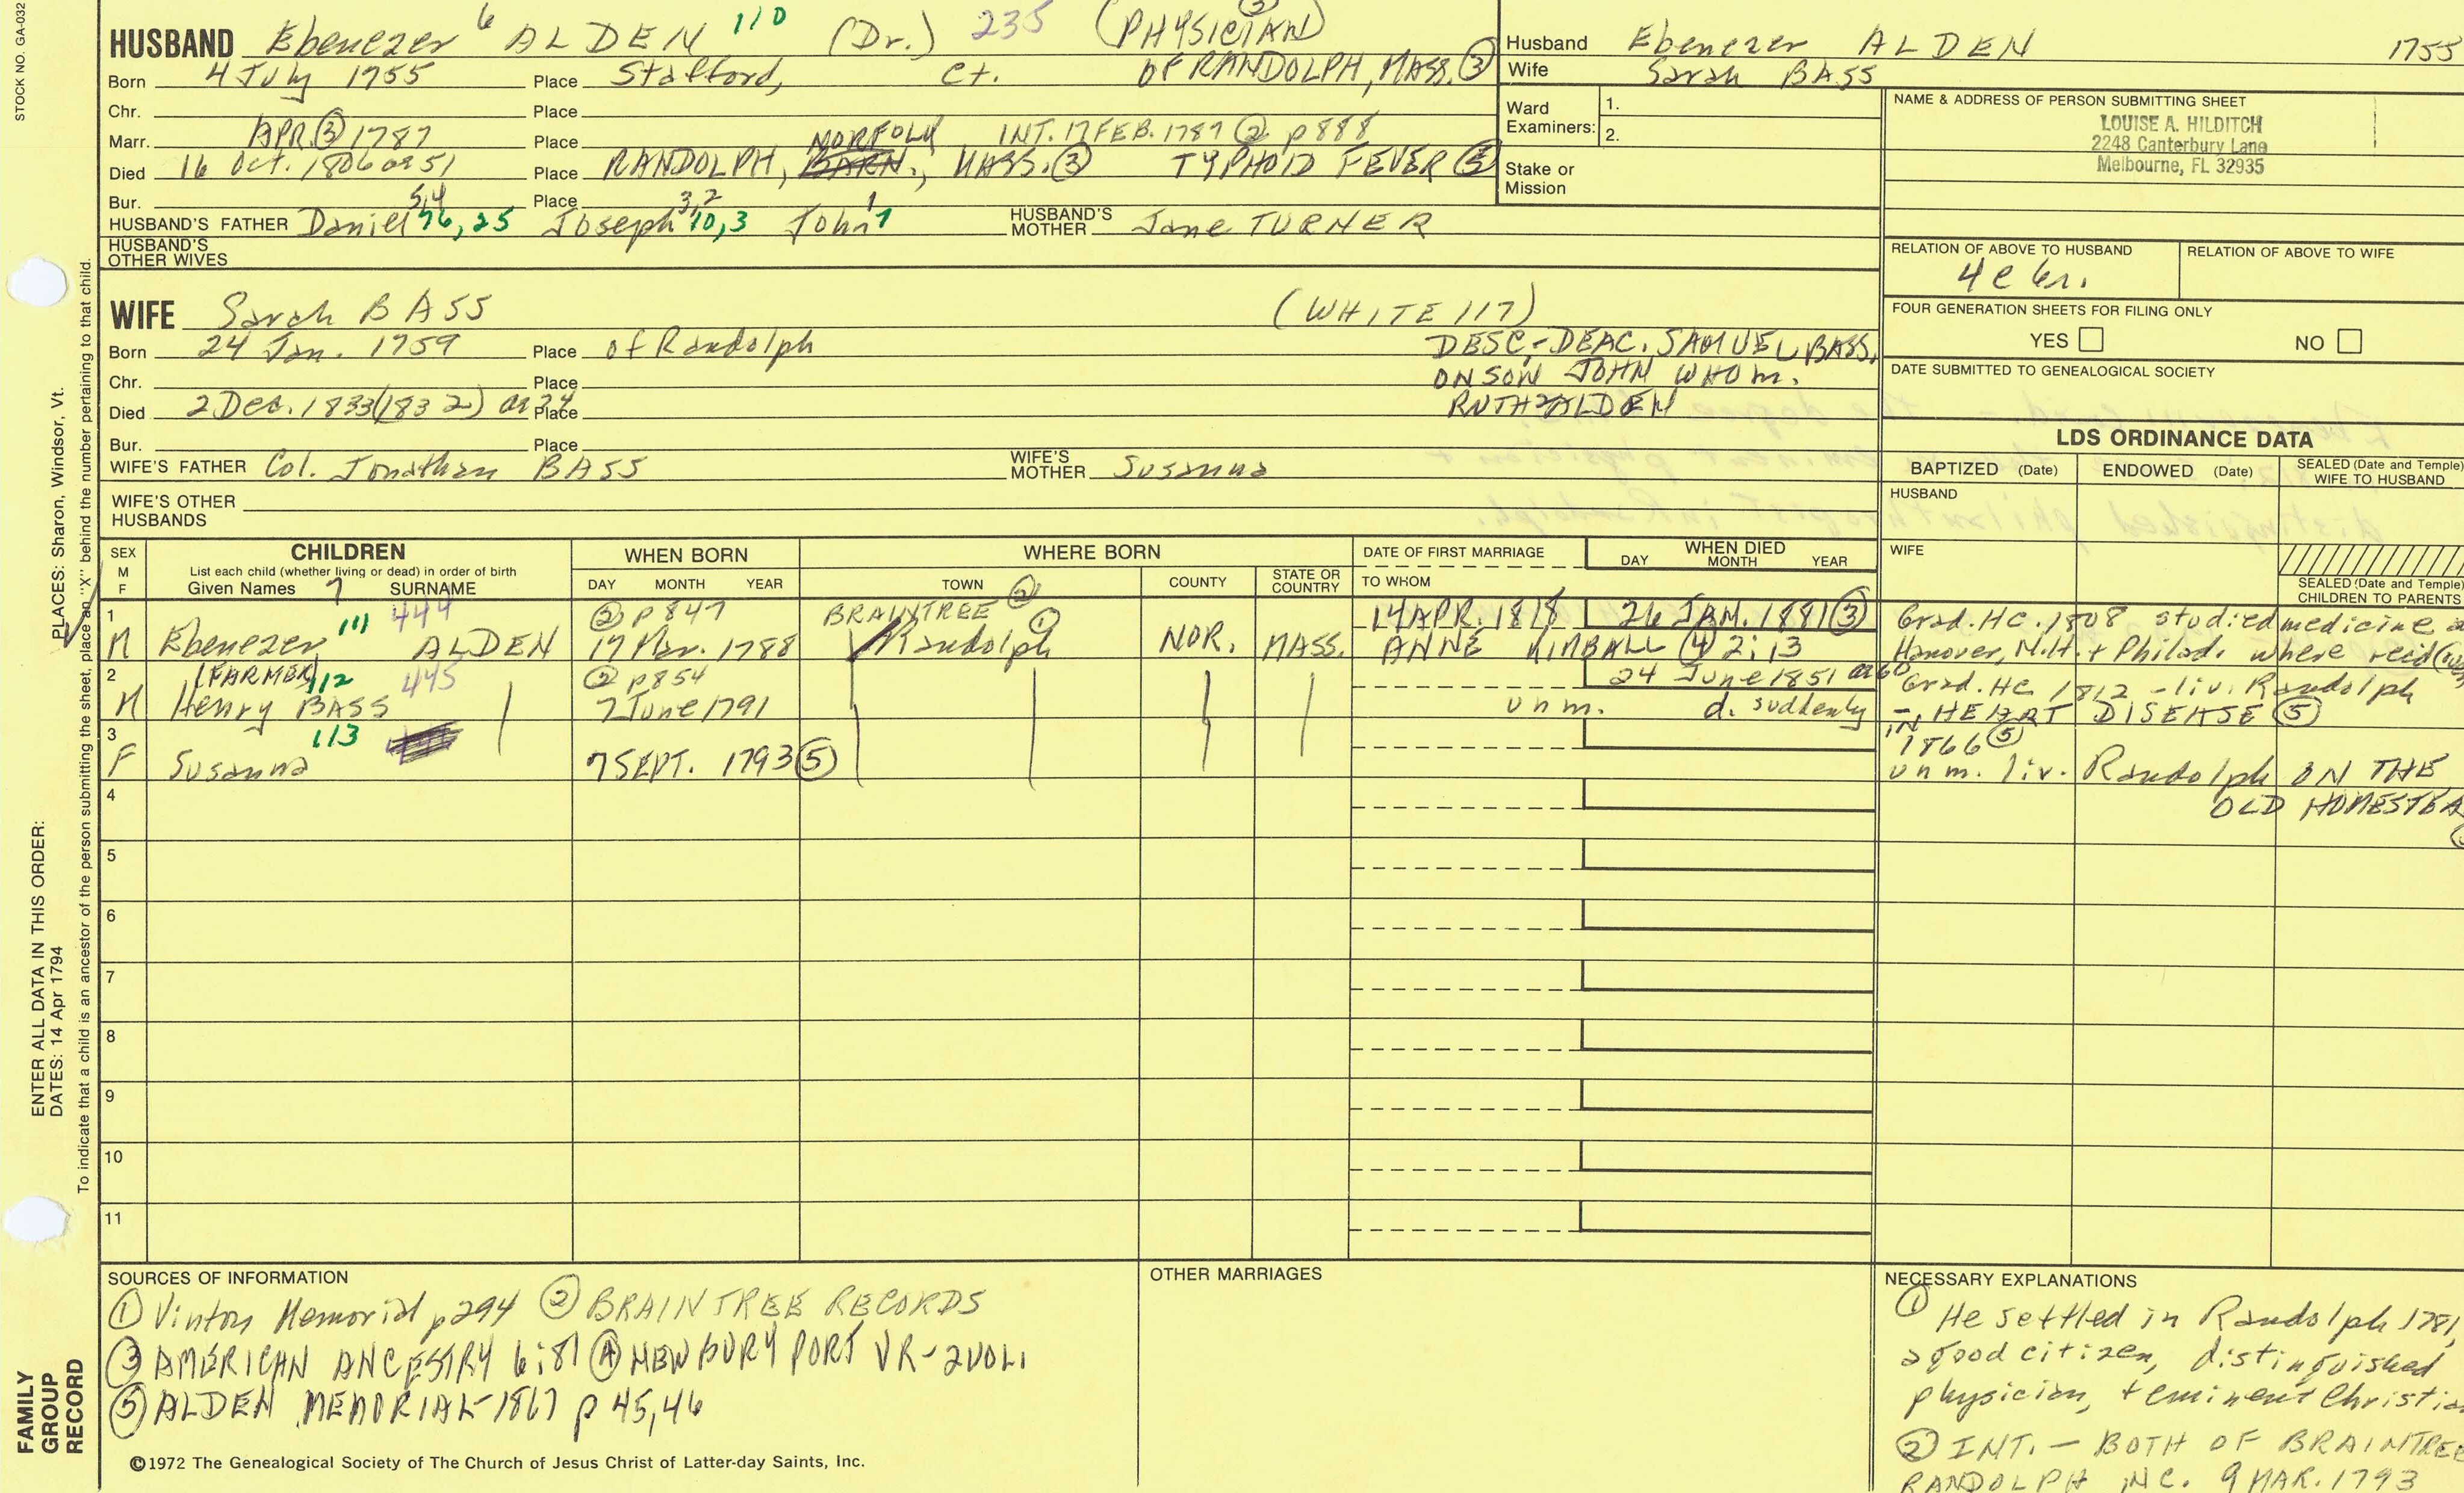 STOCK NO. GA-032
HUSBAND Ebenezer 6 ALDEN 110 (Dr.) 235 (PHYSICIAN) 3
Born 4 July 1755 Place Stafford, Ct. OF RANDOLPH, MASS. 3
Chr. Place
Marr. APR. 3 1787 Place NORFOLK INT. 17 FEB. 1787 2 p 888
Died 16 Oct. 1806 ae 51 Place RANDOLPH, BARN., MASS. 3 TYPHOID FEVER 5
Bur. Place
HUSBAND'S FATHER Daniel 5,4 76,25 Joseph 3,2 10,3 John 1 1 HUSBAND'S MOTHER Jane TURNER
HUSBAND'S OTHER WIVES
Husband Ebenezer ALDEN 1755
Wife Sarah BASS
Ward Examiners: 1.
2.
Stake or Mission
NAME & ADDRESS OF PERSON SUBMITTING SHEET
LOUISE A. HILDITCH
2248 Canterbury Lane
Melbourne, FL 32935
RELATION OF ABOVE TO HUSBAND RELATION OF ABOVE TO WIFE
4 c 6r.
FOUR GENERATION SHEETS FOR FILING ONLY
YES NO
DATE SUBMITTED TO GENEALOGICAL SOCIETY
WIFE Sarah BASS (WHITE 117)
Born 24 Jan. 1759 Place of Randolph DESC.-DEAC. SAMUEL BASS,
Chr. Place ON SON JOHN WHO m.
Died 2 Dec. 1833 (1832) ae 74 Place RUTH 2 ALDEN
Bur. Place
WIFE'S FATHER Col. Jonathan BASS WIFE'S MOTHER Susanna
WIFE'S OTHER HUSBANDS
LDS ORDINANCE DATA
BAPTIZED (Date) ENDOWED (Date) SEALED (Date and Temple) WIFE TO HUSBAND
HUSBAND
WIFE
SEALED (Date and Temple) CHILDREN TO PARENTS
SEX M F CHILDREN List each child (whether living or dead) in order of birth Given Names 7 SURNAME WHEN BORN DAY MONTH YEAR WHERE BORN TOWN 2 COUNTY STATE OR COUNTRY DATE OF FIRST MARRIAGE TO WHOM WHEN DIED DAY MONTH YEAR
1 111 444 2 p 847 BRAINTREE 1 14 APR. 1818 26 JAN. 1881 3 Grad. HC. 1808 studied medicine
M Ebenezer ALDEN 17 Mar. 1788 Randolph NOR. MASS. ANNE KIMBALL 4 2:13 Hanover, N.H. + Philad. where
2 (FARMER) 112 445 2 p 854 24 June 1851 ae 60 Grad. HC 1812 - liv. Randolph
M Henry BASS 7 June 1791 unm. d. suddenly - HEART DISEASE 5
3 113 IN 1866 5
F Susanna 7 SEPT. 1793 5 unm. liv. Randolph ON THE
4 OLD HOMESTEA
5
6
7
8
9
10
11
PLACES: Sharon, Windsor, Vt.
ENTER ALL DATA IN THIS ORDER:
DATES: 14 Apr 1794
To indicate that a child is an ancestor of the person submitting the sheet, place an "X" behind the number pertaining to that child.
FAMILY
GROUP
RECORD
SOURCES OF INFORMATION
1 Vinton Memorial p 294 2 BRAINTREE RECORDS
3 AMERICAN ANCESTRY 6:81 4 NEWBURYPORT VR- 2 VOL.
5 ALDEN MEMORIAL-1867 p 45,46
OTHER MARRIAGES
NECESSARY EXPLANATIONS
1 He settled in Randolph 1781,
a good citizen, distinguished
physician, + eminent Christia
2 INT. - BOTH OF BRAINTREE
RANDOLPH INC. 9 MAR. 1793
©1972 The Genealogical Society of The Church of Jesus Christ of Latter-day Saints, Inc.